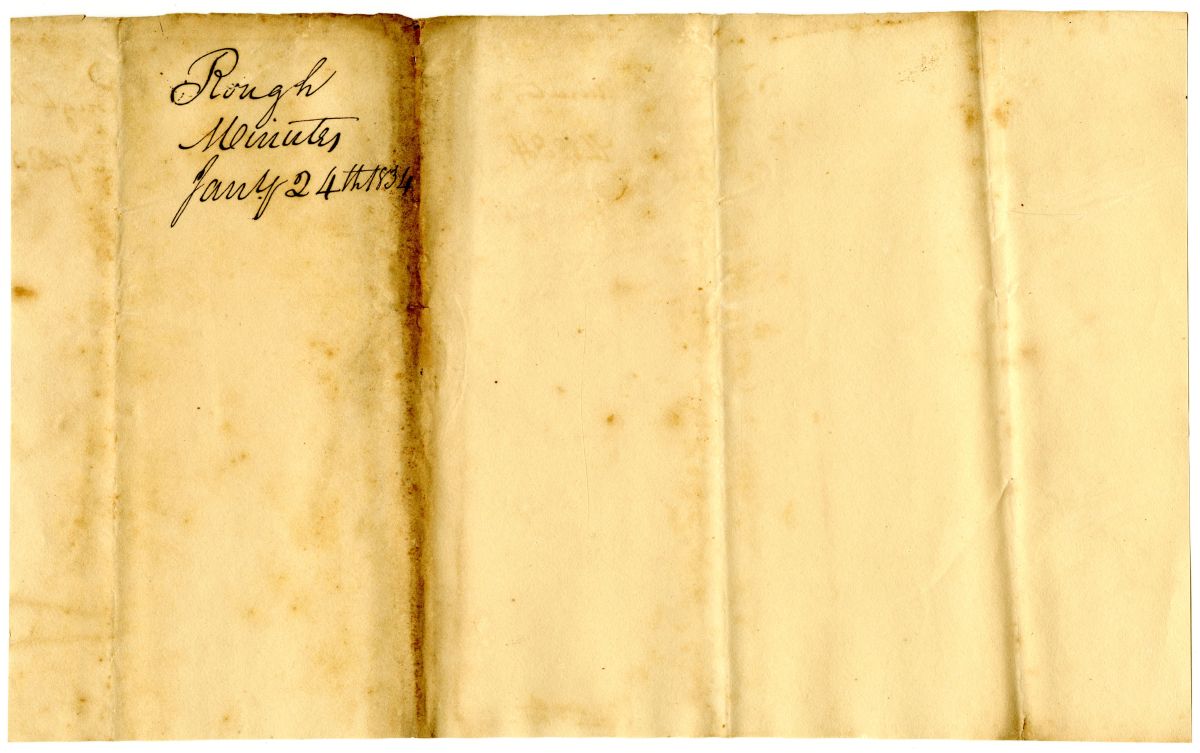 Rough
Minutes
Jany 24th 1834